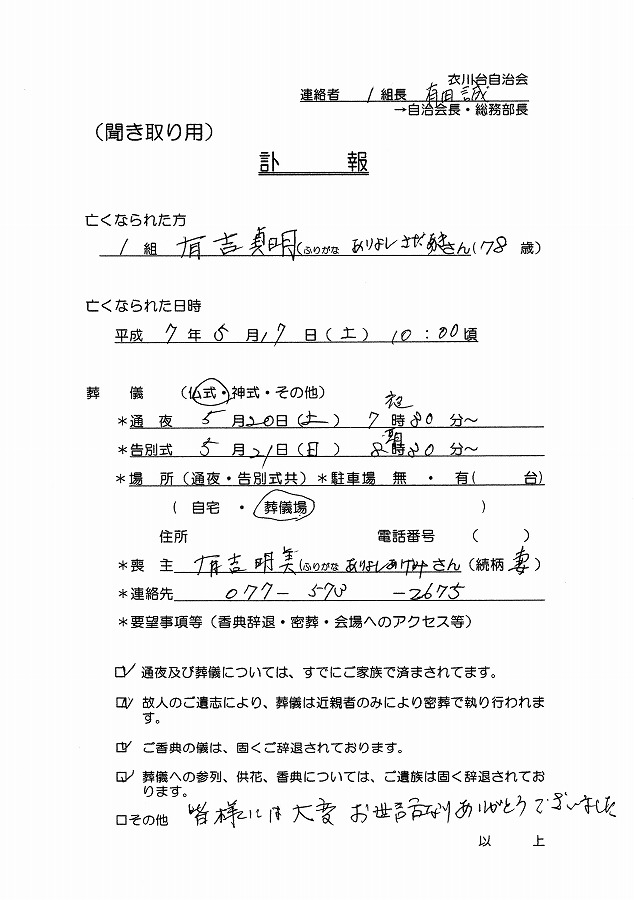 衣川台自治会
連絡者 1 組長 有田 誠
→自治会長・総務部長
（聞き取り用）
訃 報
亡くなられた方
1 組 有吉貞明(ふりがな ありよし さだあきさん(78 歳)
亡くなられた日時
平成 7 年 5 月17 日（土） 10：00頃
葬 儀 （仏式・神式・その他）
夜
＊通 夜 5 月20日（土） 7 時30 分～
朝
＊告別式 5 月21日（日） 8時30 分～
＊場 所（通夜・告別式共）＊駐車場 無 ・ 有( 台)
( 自宅 ・ 葬儀場 )
住所 電話番号 ( )
＊喪 主 有吉明美(ふりがな ありよしあけみさん（続柄 妻）
＊連絡先 077－573 －2675
＊要望事項等（香典辞退・密葬・会場へのアクセス等）
☑ 通夜及び葬儀については、すでにご家族で済まされてます。
☑ 故人のご遺志により、葬儀は近親者のみにより密葬で執り行われま
す。
☑ ご香典の儀は、固くご辞退されております。
☑ 葬儀への参列、供花、香典については、ご遺族は固く辞退されてお
ります。
□その他 皆様には大変 お世話なりありがとうございました
以 上